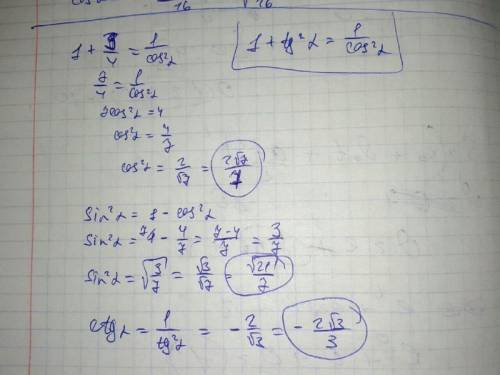 1 + 3/4 = 1/cos²α
1 + tg²α = 1/cos²α
7/4 = 1/cos²α
7cos²α = 4
cos²α = 4/7
cos²α = 2/√7 = 2√7/7
Sin²α = 1 - cos²α
Sin²α = 1 - 4/7 = 7-4/7 = 3/7
Sin²α = √3/7 = √3/√7 = √21/7
ctgα = 1/tg²α = - 2/√3 = - 2√3/3